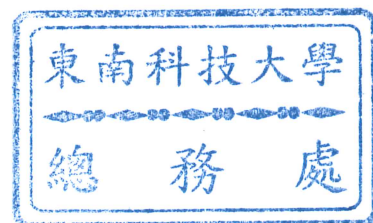 東南科技大學
總務處